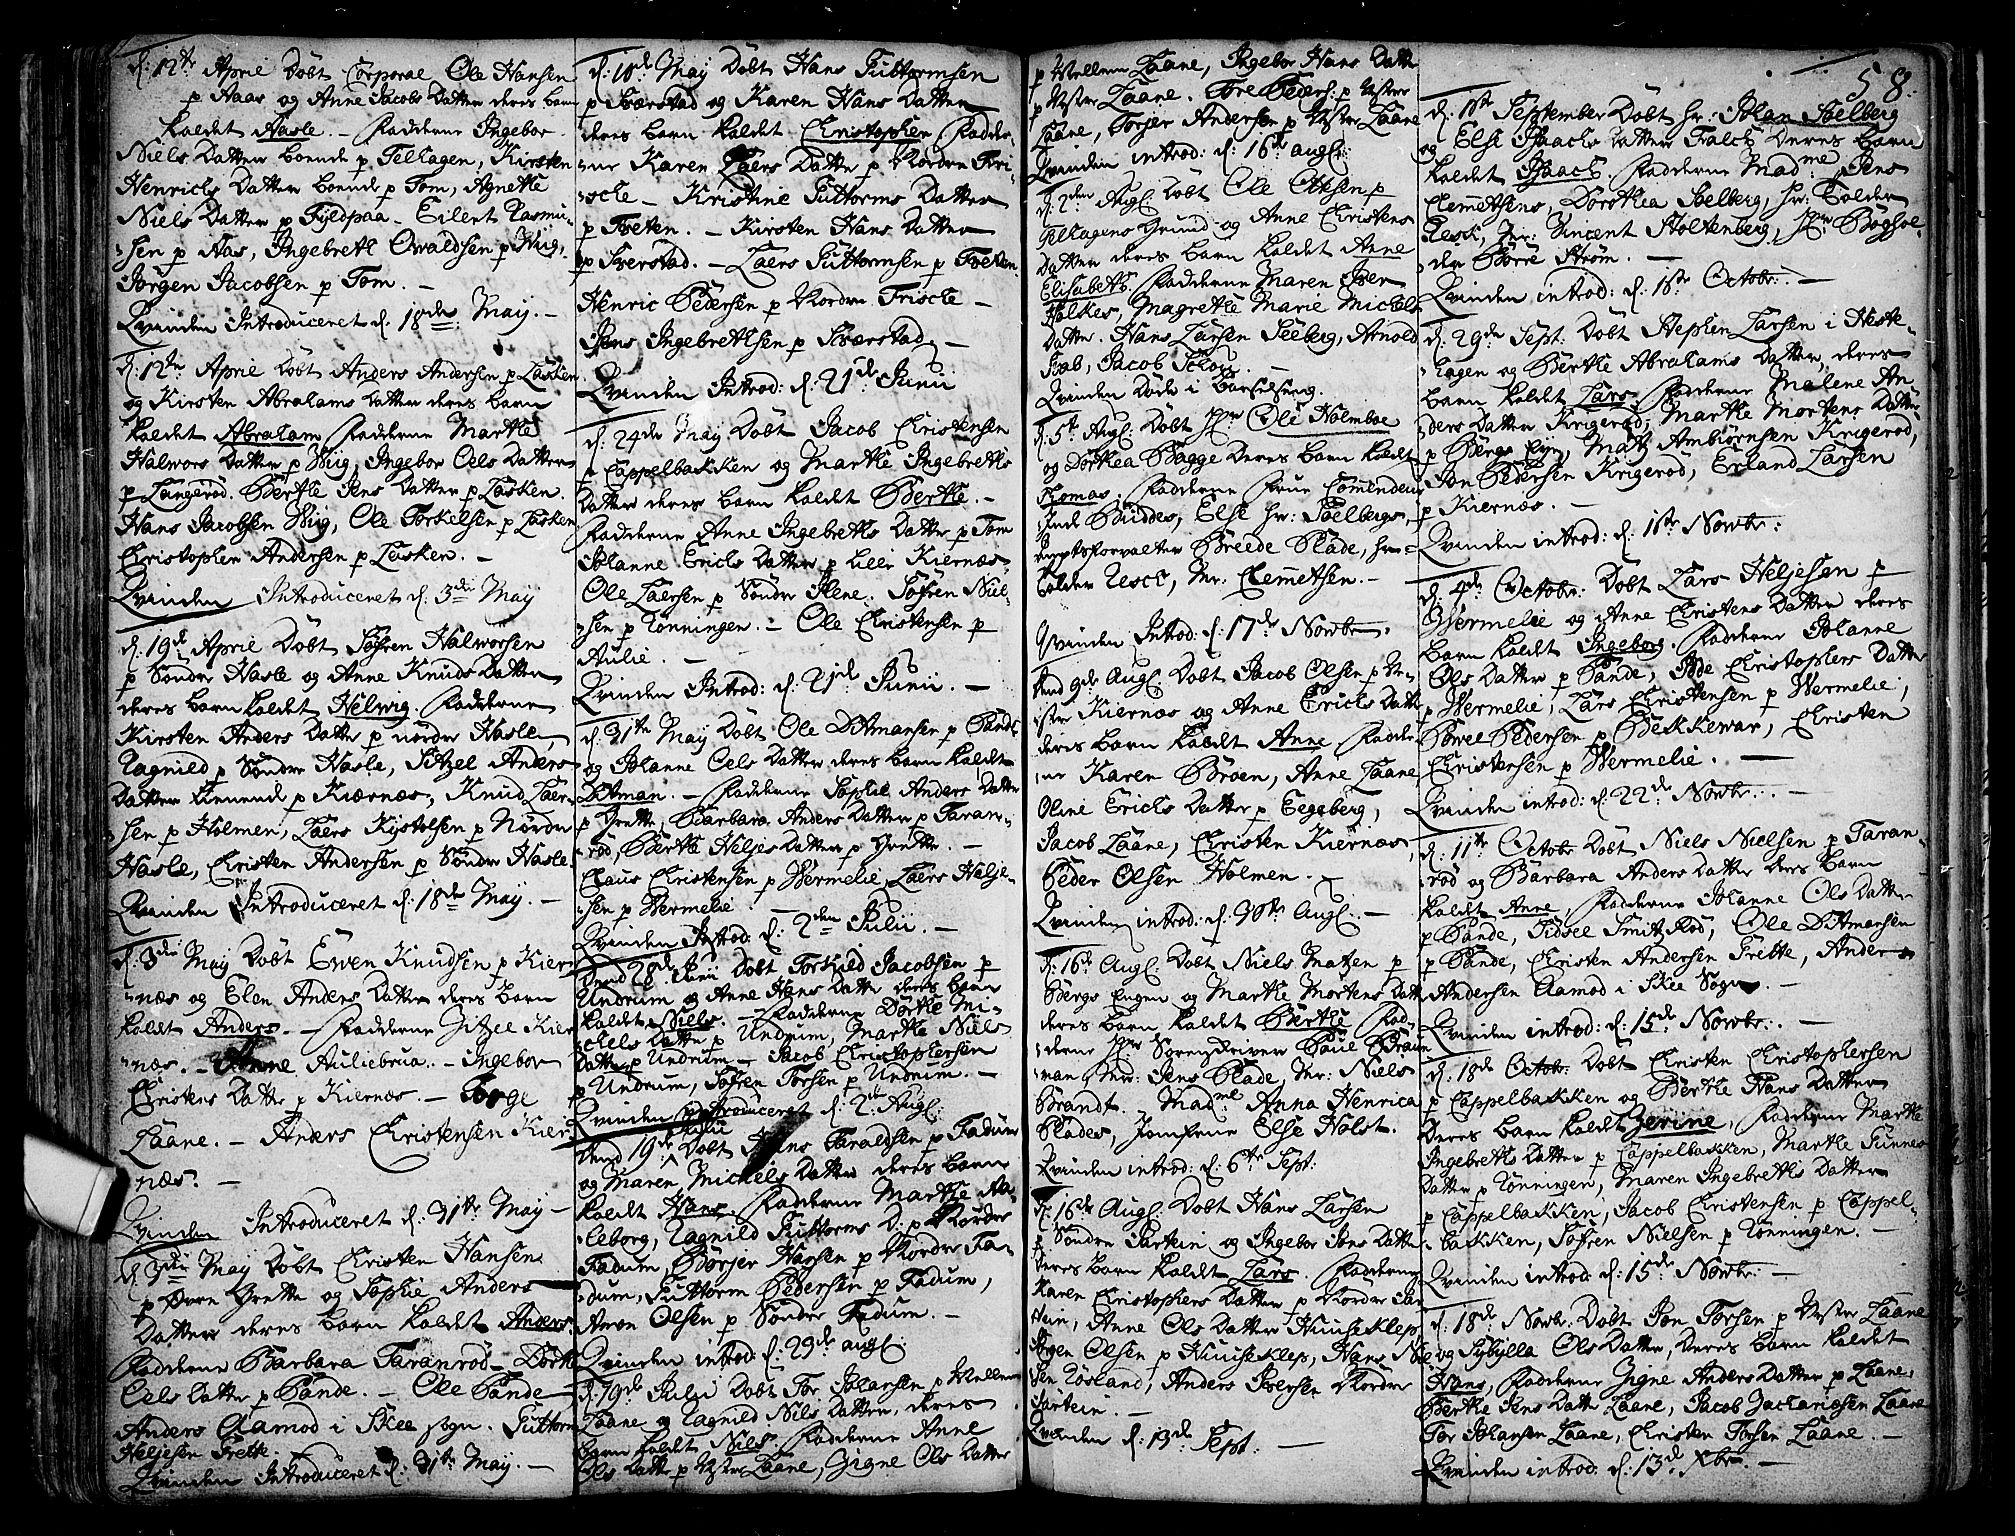 d: 12te April Döbt Corporal Ole Hansen
p Aaas og Anne Jacobs Datter deres barn
kaldet Hasle. – Fadderne Ingebor
Niels Datter boende p Felhagen, Kirsten
Henrichs Datter boende p Tom, Agnette
Niels Datter p Fyldpaa – Eilert Rasmu-
sen p Aas, Ingebreth Owaldsen p Wiig,
Jörgen Jacobsen p Tom. –
Qvinden Introduceret d: 18de May. –
d: 12te April Döbt Anders Andersen p Lasken
og Kirsten Abrahams Datter deres barn
kaldet Abraham Fadderne Marthe
Halwors Datter p Wiig, Ingebor Oels Datter
p Langeröd. Berthe Jens Datter p Lasken.
Hans Jacobsen Wiig, Ole Torkelsen p Lasken
Christopher Andersen p Lasken. –
Qvinden Introduceret d: 3die May
d: 19de April Döbt Söfren Halworsen
p Sönder Hasle og Anne Knuds Datter
deres barn kaldet Helwig. Fadderne
Kirsten Anders Datter p nörder Hasle,
Ragnild p Sönder Hasle, Sitzel Anders
Datter tienende p Kiernæs, Knud Laer-
sen p Holmen, Laers Kystolsen p Nörder
Hasle, Christen Andersen p Sönder Hasle.
Qvinden Introduceret d: 18de May. –
d: 3die May Döbt Ewen Knudsen p Kier-
næs og Elen Anders Datter deres barn
kaldt Anders. – Fadderne Zitzel Kier
næs. – Anne Auliebrua. – Ingebor
Christens Datter p Kiernæs. – Borge
Laane. – Anders Christensen Kier
næs. –
Qvinden Introduceret d: 31te May –
d: 3die May Döbt Christen Hansen
p Övre Grette og Sophie Anders
Datter deres barn kaldet Anders.
Fadderne Barbara Taranröd – Dorthe
Oels Datter p Sande. – Ole Sande
Anders Aamod i Skee sogn. Guttorm
Heljesen Trette.
Qvinden Introduceret d: 31te May. –
d: 10de May Döbt Hans Guttormsen
p Sværstad og Karen Hans Datter
deres barn kaldet Christopher Fadder-
ne Karen Laers Datter p Nordre Fri-
scke – Kristine Guttorms Datter
p Tveten. – Kirsten Hans Datter
p Sverstad. – Laers Guttormsen p Tveten
Henric Pedersen p Nordre Friscke –
Jens Ingebrethsen p Sværstad. –
Qvinden Introd: d: 21de Junii
d: 24de May Döbt Jacob Christensen
p Cappelbakken og Marthe Ingebreths
Datter deres barn kaldet Berthe. –
Fadderne Anne Ingebreths Datter p Tom
Johanne Erichs Datter p Leer Kiernæs.
Ole Laersen p Söndre Ilene. Söfren Niel-
sen p Rönningen. – Ole Christensen p
Aulie. –
Qvinden Introd: d: 21de Junii. –
d: 31te May Döbt Ole Ditmansen p Sande
og Johanne Oels Datter deres barn kaldet
Ditman. – Fadderne Sophie Anders Datter
p Grette, Barbara Anders Datter p Taran-
röd, Berthe Heljes Datter p Grette. –
Claus Christensen p Wermelie, Laers Helje-
sen p Wermelie –
Qvinden Introd: d: 2den Julii. –
Dend 28de Junii Döbt Torkild Jacobsen p
Undrum og Anne Hans Datter deres barn
kaldet Niels. – Fadderne Dorthe Mi-
chels Datter p Undrum, Marthe Niels
Datter p Undrum – Jacob Christophersen
p Undrum, Söfren Torsen p Undrum. –
Qvinden Introduceret d: 2de Augl.
Dend 19de Julii Döbt Hans Taraldsen p Fadum
og Maren Mickels Datter deres barn
kaldt Hans. Fadderne Marthe Aa-
leborg, Ragnild Guttorms D: p Nordre
Fadum, Börjer Hassen p Nordre Fa-
dum, Guttorm Pedersen p Fadum,
Amon Olsen p Sönder Fadum. –
Qvinden introd: d: 29de augl.
d: 19de Julii Döbt Tor Johansen p Mellem
Laane og Ragnild Nils Datter, deres
barn kaldt Nils Fadderne Anne
Ols Datter p Öster Laane, Signe Ols Datter
p Mellem Laane, Ingebor Hans Datter
p Öster Laane. Tore Peders: p Öster
Laane, Torjer Andersen p Öster Laane
Qvinden introd: d: 16de augl:
d: 2den Augl. Döbt Ole Olsen p
Felhagens Grund og Anne Christens
Datter deres barn kaldet Anne
Elisabeth. Fadderne Maren Iver
Holkes, Magrethe Marie Michels
Datter. Hans Larsen Seeberg, Arnold
Fab, Jacob Schoy. –
Qvinden döde i barselseng.
d: 5te Augl. Döbt Hr: Ole Holmboe
og Dorthea Bagge Deres barn kaldt
Thomas. Fadderne Frue Comendeur
Inde Buddes, Else hr: Soelbergs,
Byeforvalter Breede Plade, hr:
tolder Resch, Mr: Clemetsen. –
Qvinden Introd: d: 17de Novbr.
Dend 9de Augl. Döbt Jacob Olsen p Ve-
ster Kiernæs og Anne Erichs Datter
deres barn kaldet Anne Fadder-
ne Karen Broen, Anne Laane
Oline Erichs Datter p Eegeberg,
Jacob Laane, Christen Kiernæs,
Peder Olsen Holmen. –
Qvinden introd: d: 30te Augl. –
d: 16de Augl. Döbt Niels Matzen p
Bergs Engen og Marthe Mortens Datter
deres barn kaldet Berthe Fad-
derne Hr: Sorenskriver Poul Braun
man, Mr: Jens Plade, Mr: Niels
Brandt. Madme Anna Henrica
Plades, Jomfrue Else Holst. –
Qvinden introd: d: 6te Sept:
d: 16de Augl. Döbt Hans Larsen
p Söndre Sartein og Ingebor Jens Datter
deres barn kaldt Lars. Fadderne
Karen Christophers Datter p Nordre Sar
tein, Anne Ols Datter Huuseklep,
Jörgen Olsen p Huuseklep, Hans Niel
sen Röseland, Anders Iversen Nordre
Sartein. –
Qvinden d: 13de Sept: –
58.
d: 11te September Döbt hr: Johan Soelberg
og Else Isaachs Datter Falch deres barn
kaldet Isaach Fadderne Madme Jens
Clemetsens, Dorothea Soelberg, hr: Tolder
Resch, Mr: Vincent Stoltenberg, Hr: Boghol-
der Börre Ström. –
Qvinden introd: d: 18te Octobr: –
d: 29de Sept: Döbt Stephen Larsen i Heste-
hagen og Berthe Abrahams Datter, deres
barn kaldet Lars. Fadderne Malene An-
ders Datter Krigeröd, Marthe Mortens Datter
p Bergs Eye, Matz Ambiörnsen Krigeröd,
Jon Pedersen Krigeröd, Erland Larsen
p Kiernæs. –
Qvinden introd: d: 18te Novbr:
d: 4de Octobr: Döbt Lars Heljesen p
Wermelie og Anne Christens Datter deres
barn kaldt Ingeborg. Fadderne Johanne
Ols Datter p Sande, Ide Christophers Datter
p Wermelie, Lars Christensen p Wermelie,
Powel Pedersen p Bekkevar, Christen
Christensen p Wermelie. –
Qvinden introd: d: 22de Novbr. –
d: 11te Octobr Döbt Niels Nielsen p Taran-
röd og Barbara Anders Datter deres barn
kaldt Anne, Fadderne Johanne Ols Datter
p Sande, Sidsel Smitz Röd, Ole Ditmansen
p Sande, Christen Andersen Trette, Anders
Andersen Aamod i Skee Sogn. –
Qvinden introd: d: 15de Novbr. –
d: 18de Octobr: Döbt Christen Christophersen
p Cappelbakken og Berthe Hans Datter
deres barn kaldt Zerine, Fadderne Marthe
Ingebreths Datter p Cappelbakken, Marthe Gunners
Datter p Rönningen, Maren Ingebreths Datter
p Cappelbakken, Jacob Christensen p Cappel-
bakken, Söfren Nielsen p Rönningen. –
Qvinden introd: d: 15de Novbr. –
d: 18de Novbr. Döbt Jon Torsen p Öster Laane
og Sybylla Ols Datter, deres barn kaldet
Hans, Fadderne Signe Anders Datter p Laane
Berthe Jens Datter Laane, Jacob Zachariasen Laane
Tor Johansen Laane, Christen Torsen Laane. –
Qvinden introd: d: 13de Xbr. –